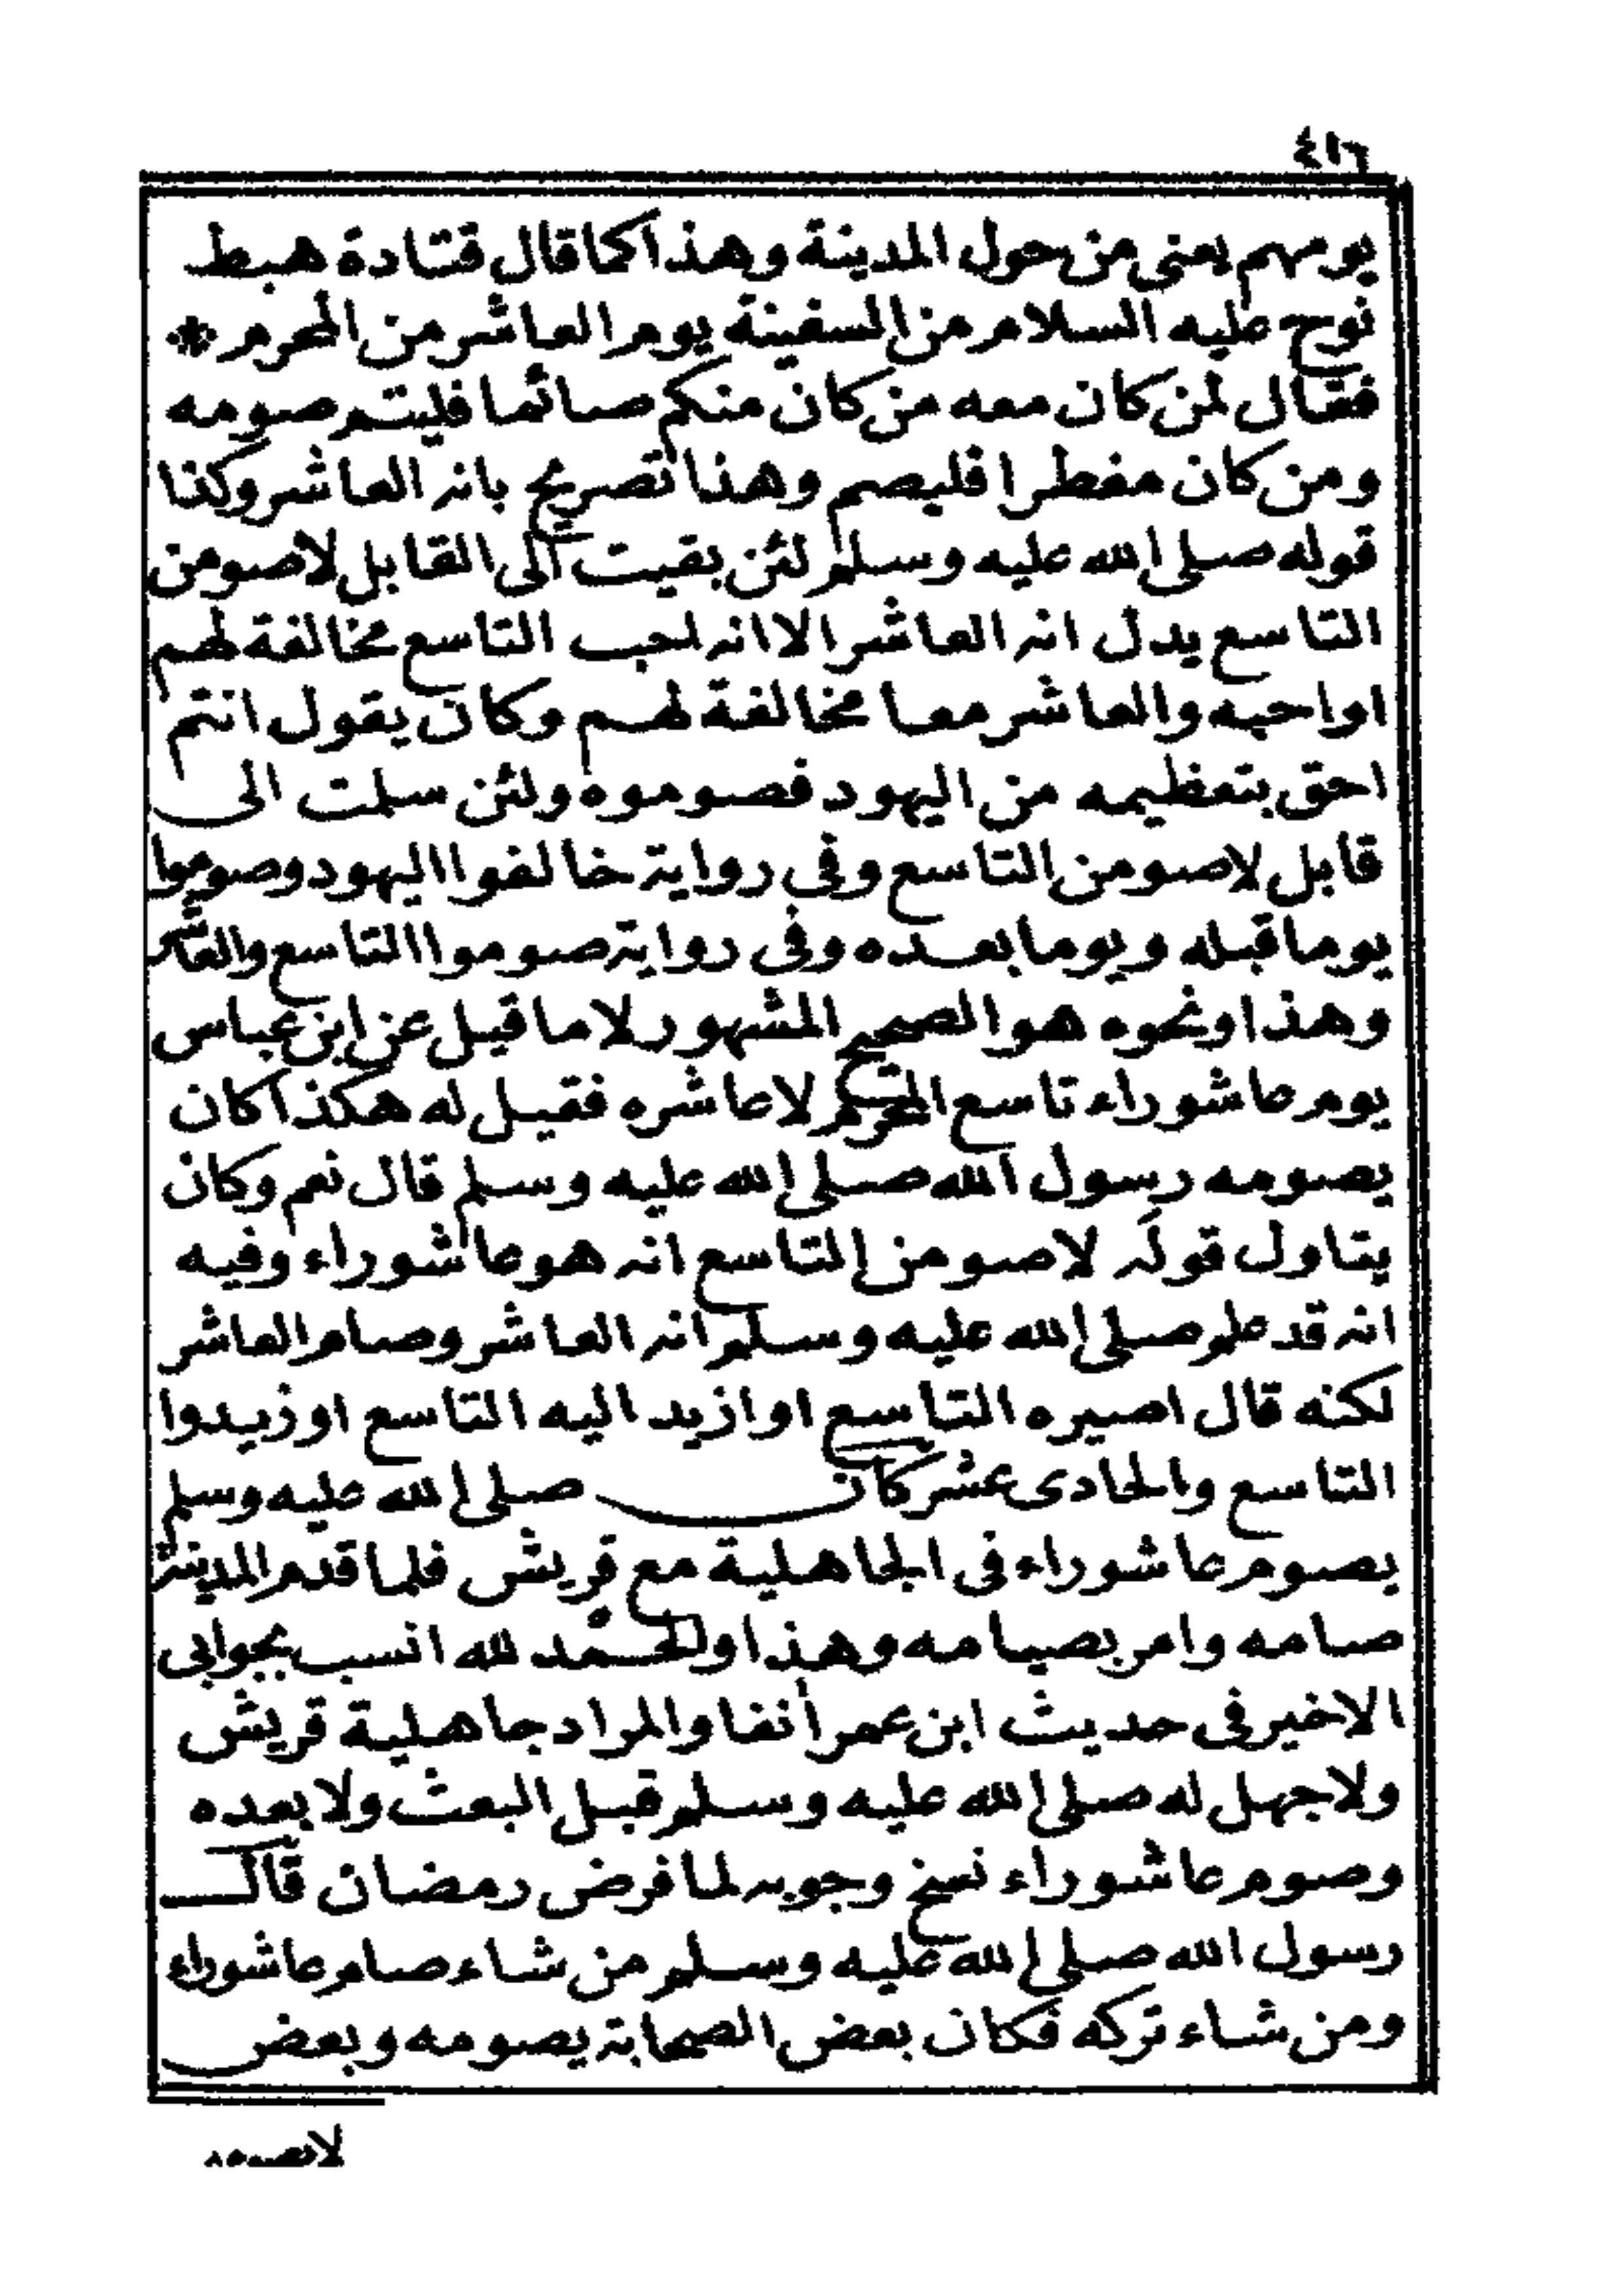 ٤١٦
يومهم يعنى من حول المدينة وهذا كما قال قتادة هبط
نوح عليه السلام من السفينة يوم العاشر من المحرم *
فقال لمن كان معه من كان منكم صائما فليتم صومه
ومن كان مفطرا فليصم وهنا تصريح بانه العاشر وكذا
قوله صلى الله عليه وسلم لئن بقيت الى القابل لاصومن
التاسع يدل انه العاشر الا انه احب التاسع مخالفة لهم
او احبه والعاشر معا مخالفة لهم وكان يقول انتم
احق بتعظيمه من اليهود فصوموه ولئن سلمت الى
قابل لاصومن التاسع وفى رواية خالفوا اليهود وصوموا
يوما قبله ويوما بعده وفى رواية صوموا التاسع والعاشر
وهذا ونحوه هو الصحيح المشهور لا ما قيل عن ابن عباس
يوم عاشوراء تاسع المحرم لا عاشره فقيل له هكذا كان
يصومه رسول الله صلى الله عليه وسلم قال نعم وكان
يتاول قوله لاصومن التاسع انه هو عاشوراء وفيه
انه قد علم صلى الله عليه وسلم انه العاشر وصام العاشر
لكنه قال اصيره التاسع او ازيد اليه التاسع او زيدوا
التاسع والحادى عشر كان صلى الله عليه وسلم
يصوم عاشوراء فى الجاهلية مع قريش فلما قدم المدينة
صامه وامر بصيامه وهذا والحمد لله انسب بجوابى
الاخير فى حديث ابن عمر أنفا والمراد جاهلية قريش
ولا جهل له صلى الله عليه وسلم قبل البعث ولا بعده
وصوم عاشوراء نسخ وجوبه لما فرض رمضان قال
رسول الله صلى الله عليه وسلم من شاء صام عاشوراء
ومن شاء تركه فكان بعض الصحابة يصومه وبعض